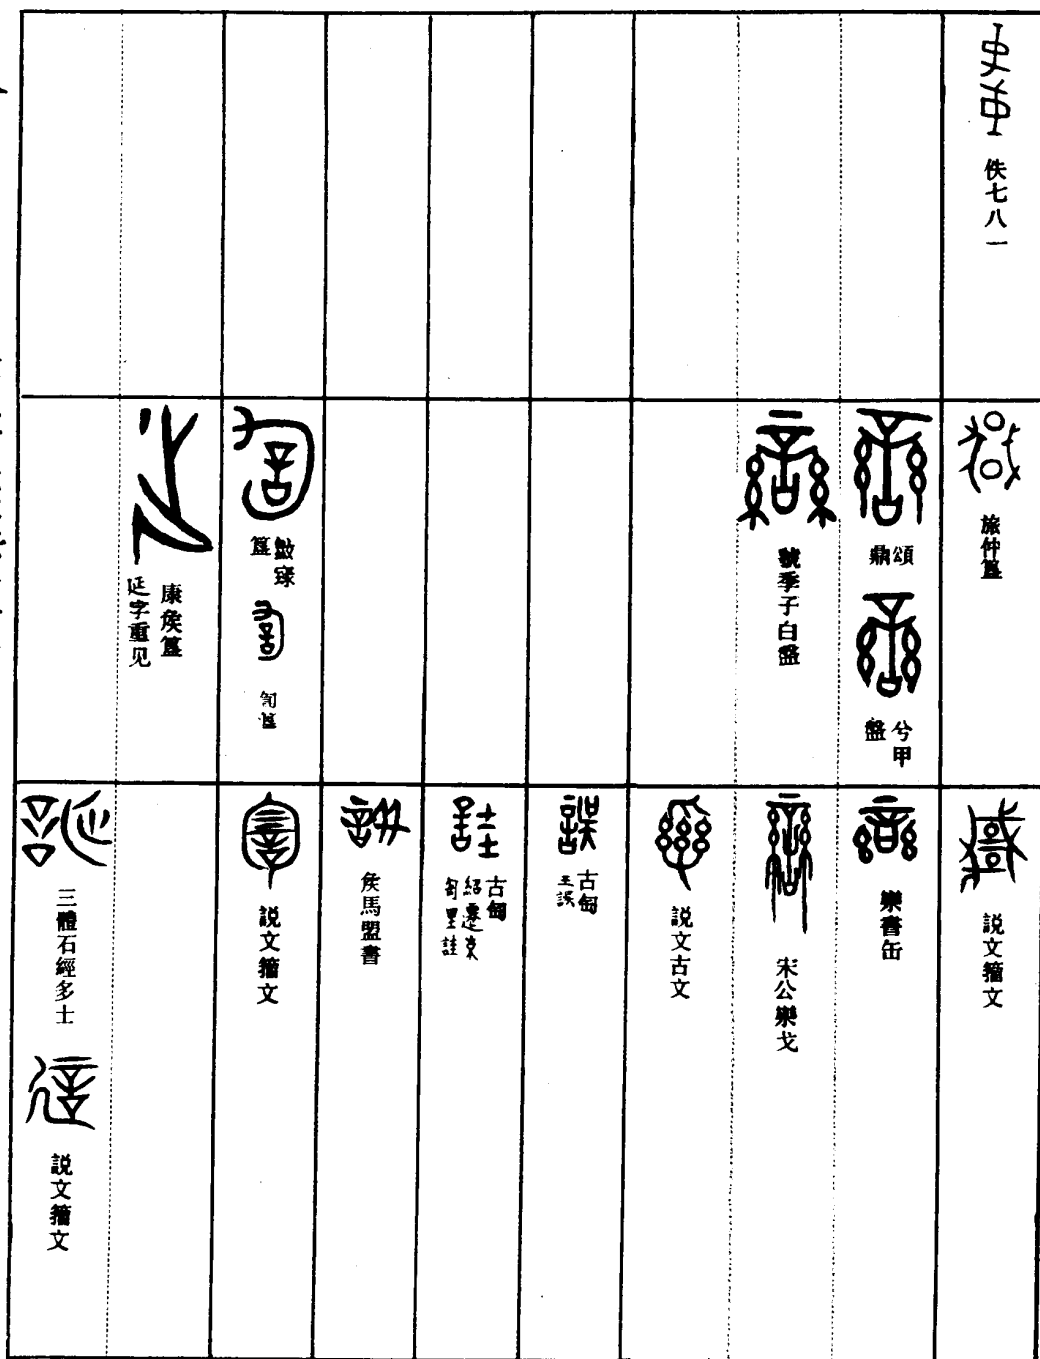 佚七八一
旅仲簋
説文籀文
頌鼎
兮甲盤
欒書缶
虢季子白盤
宋公欒戈
説文古文
古匋
王誤
古匋
匋里詿
侯馬盟書
簋
訇簋
説文籀文
康侯簋
延字重见
三體石經多士
説文籀文